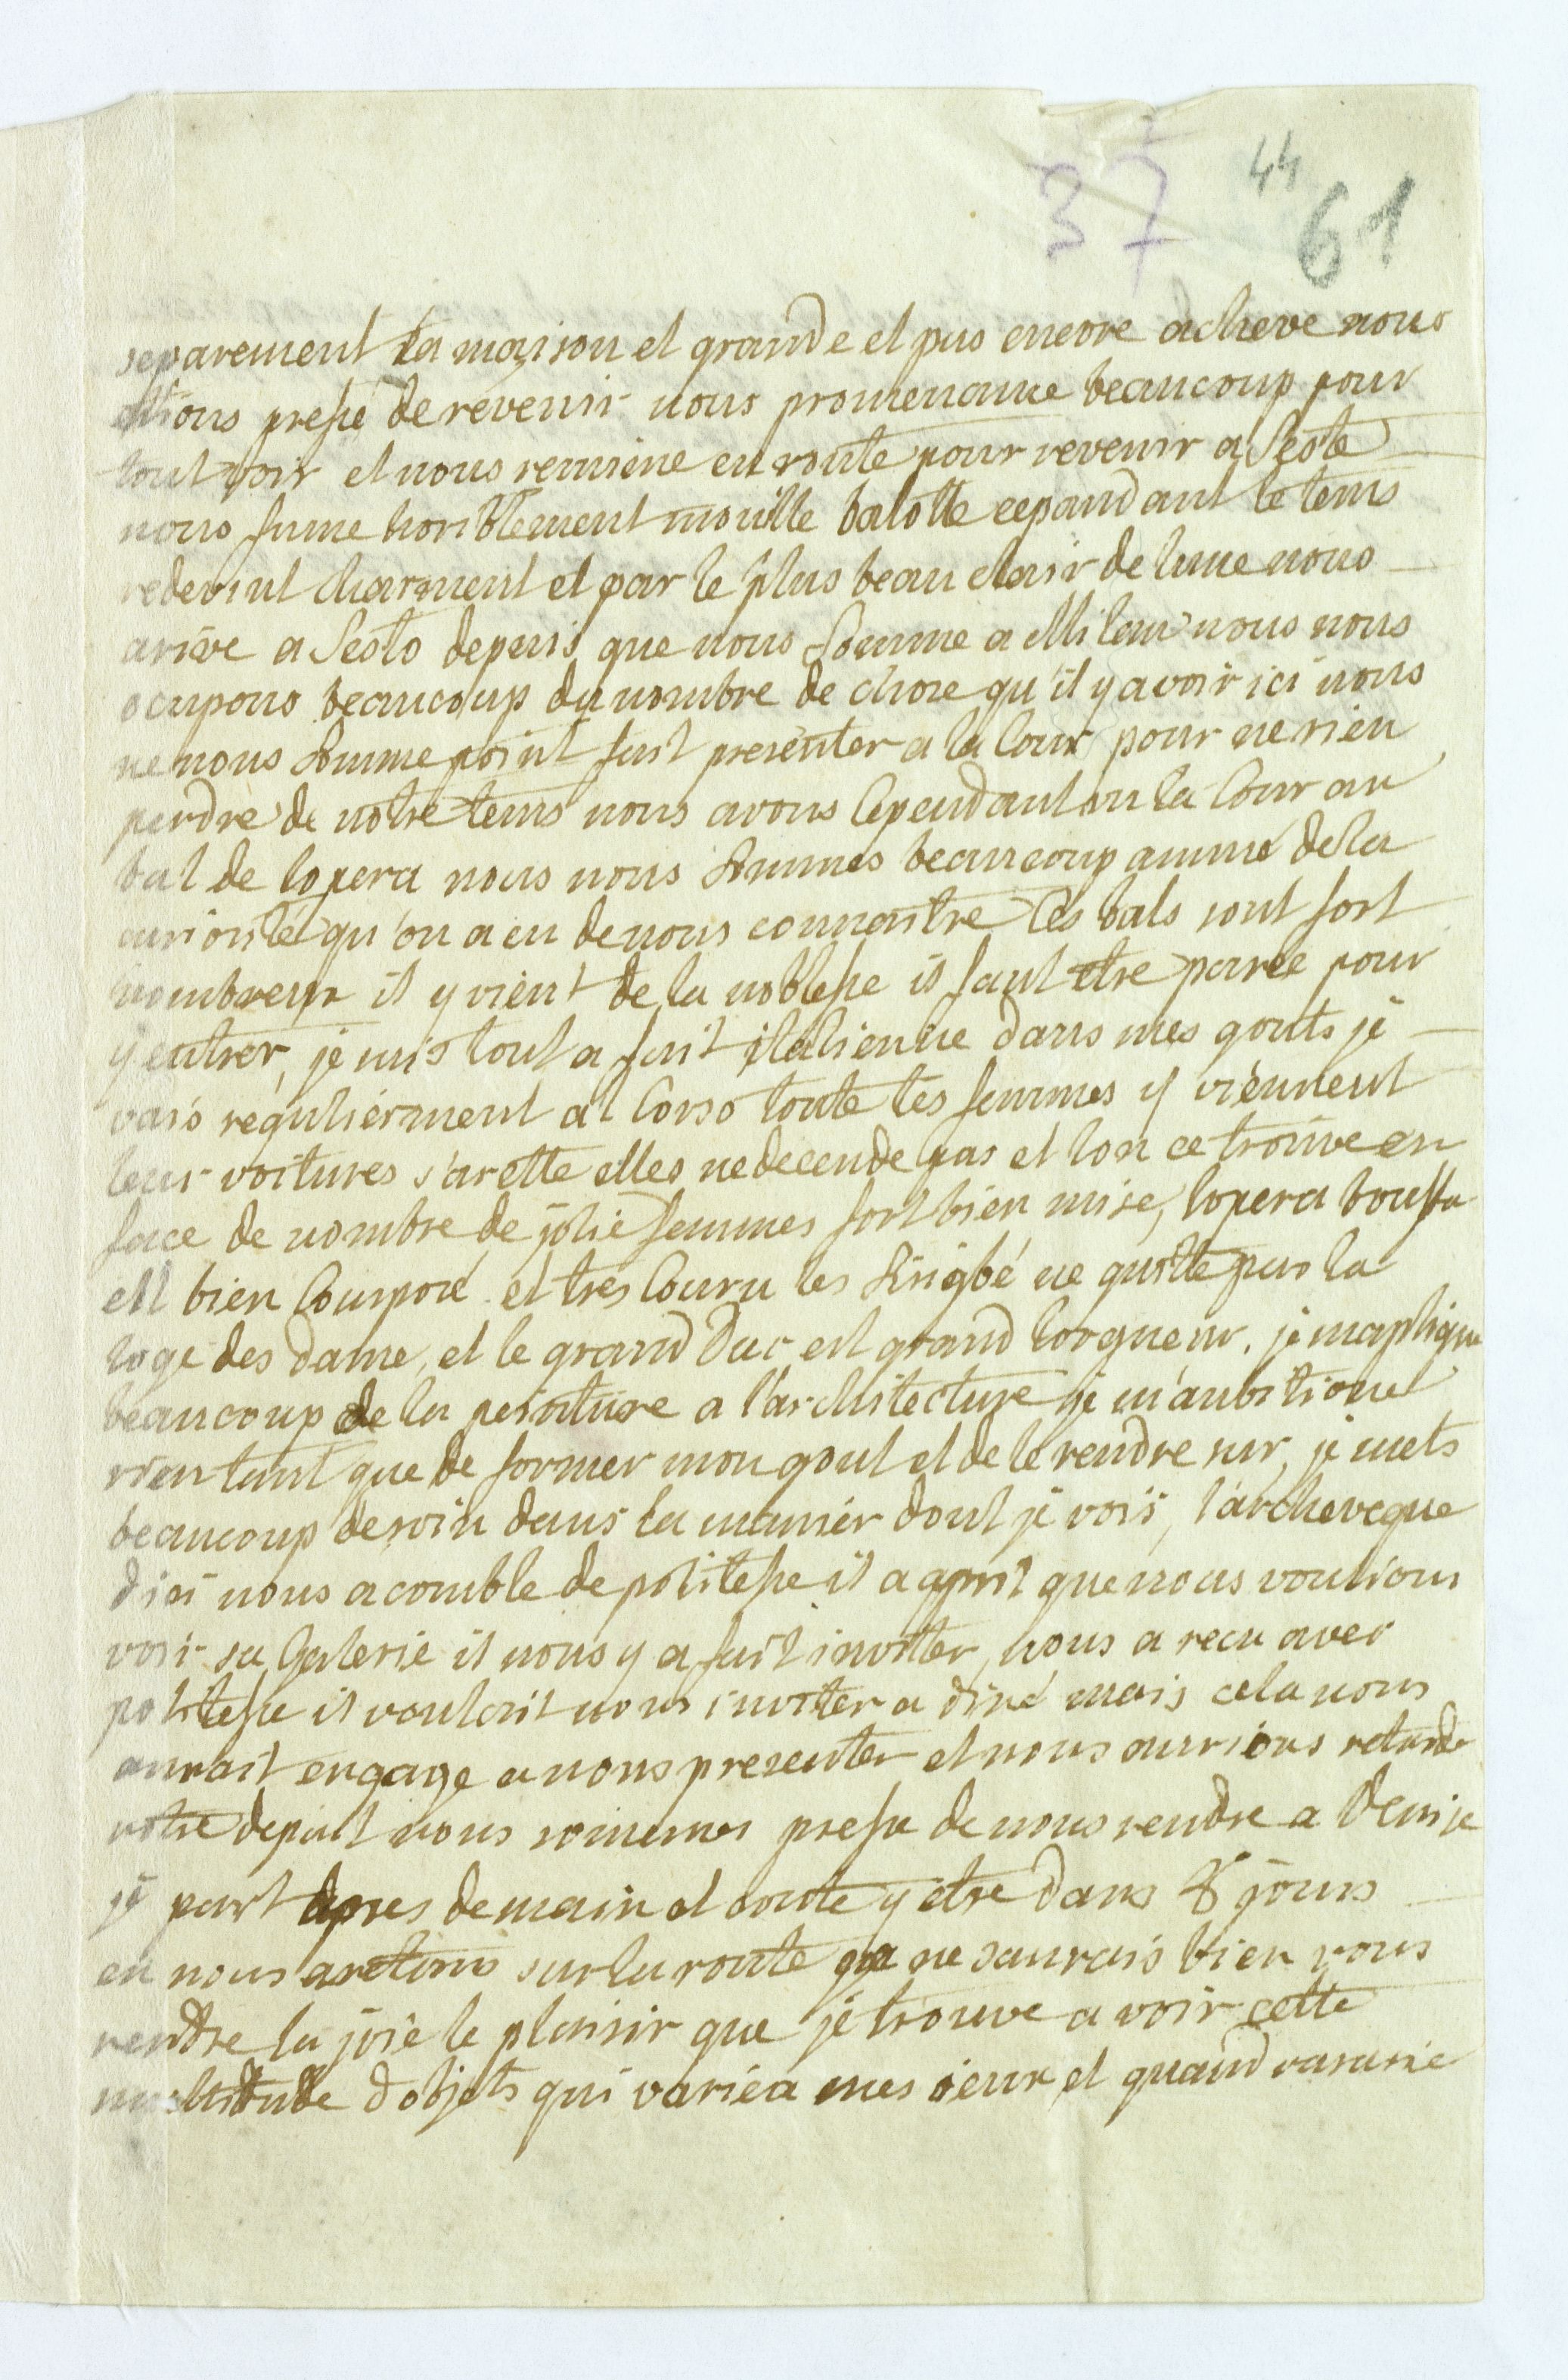 37 44 61
separement La maison et grande et pas encore acheve nous
etions pressé de revenir nous promename beaucoup pour
tout voir et nous remime en route pour revenir a Seste
nous fume horiblement mouille balotte cepandant le tems
redevint charment et par le plus beau clair de lune nous
arive a Sesto depuis que nous Somme a Milan nous nous
ocupons beaucoup du nombre de chose qu'il y a voir ici nous
ne nous Somme point fait presenter a la Cour pour ne rien
perdre de notre tems nous avons Cependant vu la Cour au
bal de lopera nous nous Sommes beaucoup amusé de la
curiosité qu'on a eu de nous connaitre Ces bals sont fort
nombreux il y vient de la noblesse il faut etre parée pour
y entrer, je suis tout a fait italienne dans mes gouts je
vais reguliérment al Corso toute les femmes y viennent
leur voitures s'arette elles ne decende pas et lon ce trouve en
face de nombre de jolie femmes fort bien mise, lopera bouffa
est bien Composé et tres Couru les Sigisbé ne quitte pas la
loge des dame, et le grand Duc est grand lorgneur. je maplique
beaucoup de la peinture a l'architecture je n'anbitione
rien tant que de former mon gout et de le rendre sur, je mets
beaucoup de soin dans la maniér dont je vois, l'archeveque
dici nous a comble de politesse il a aprit que nous voulions
voir sa Galerie il nous y a fait inviter, nous a recu avec
politesse il voulait nous inviter a diné mais cela nous
aurait engage a nous presenter et nous aurions retarde
notre depart nous sommes presse de nous rendre a Venise
je part apres demain et conte y etre dans 8 jours
en nous aretans sur la route je ne saurais bien vous
rendre la joie le plaisir que je trouve a voir cette
multitude dobjets qui varie a mes ieux et quand